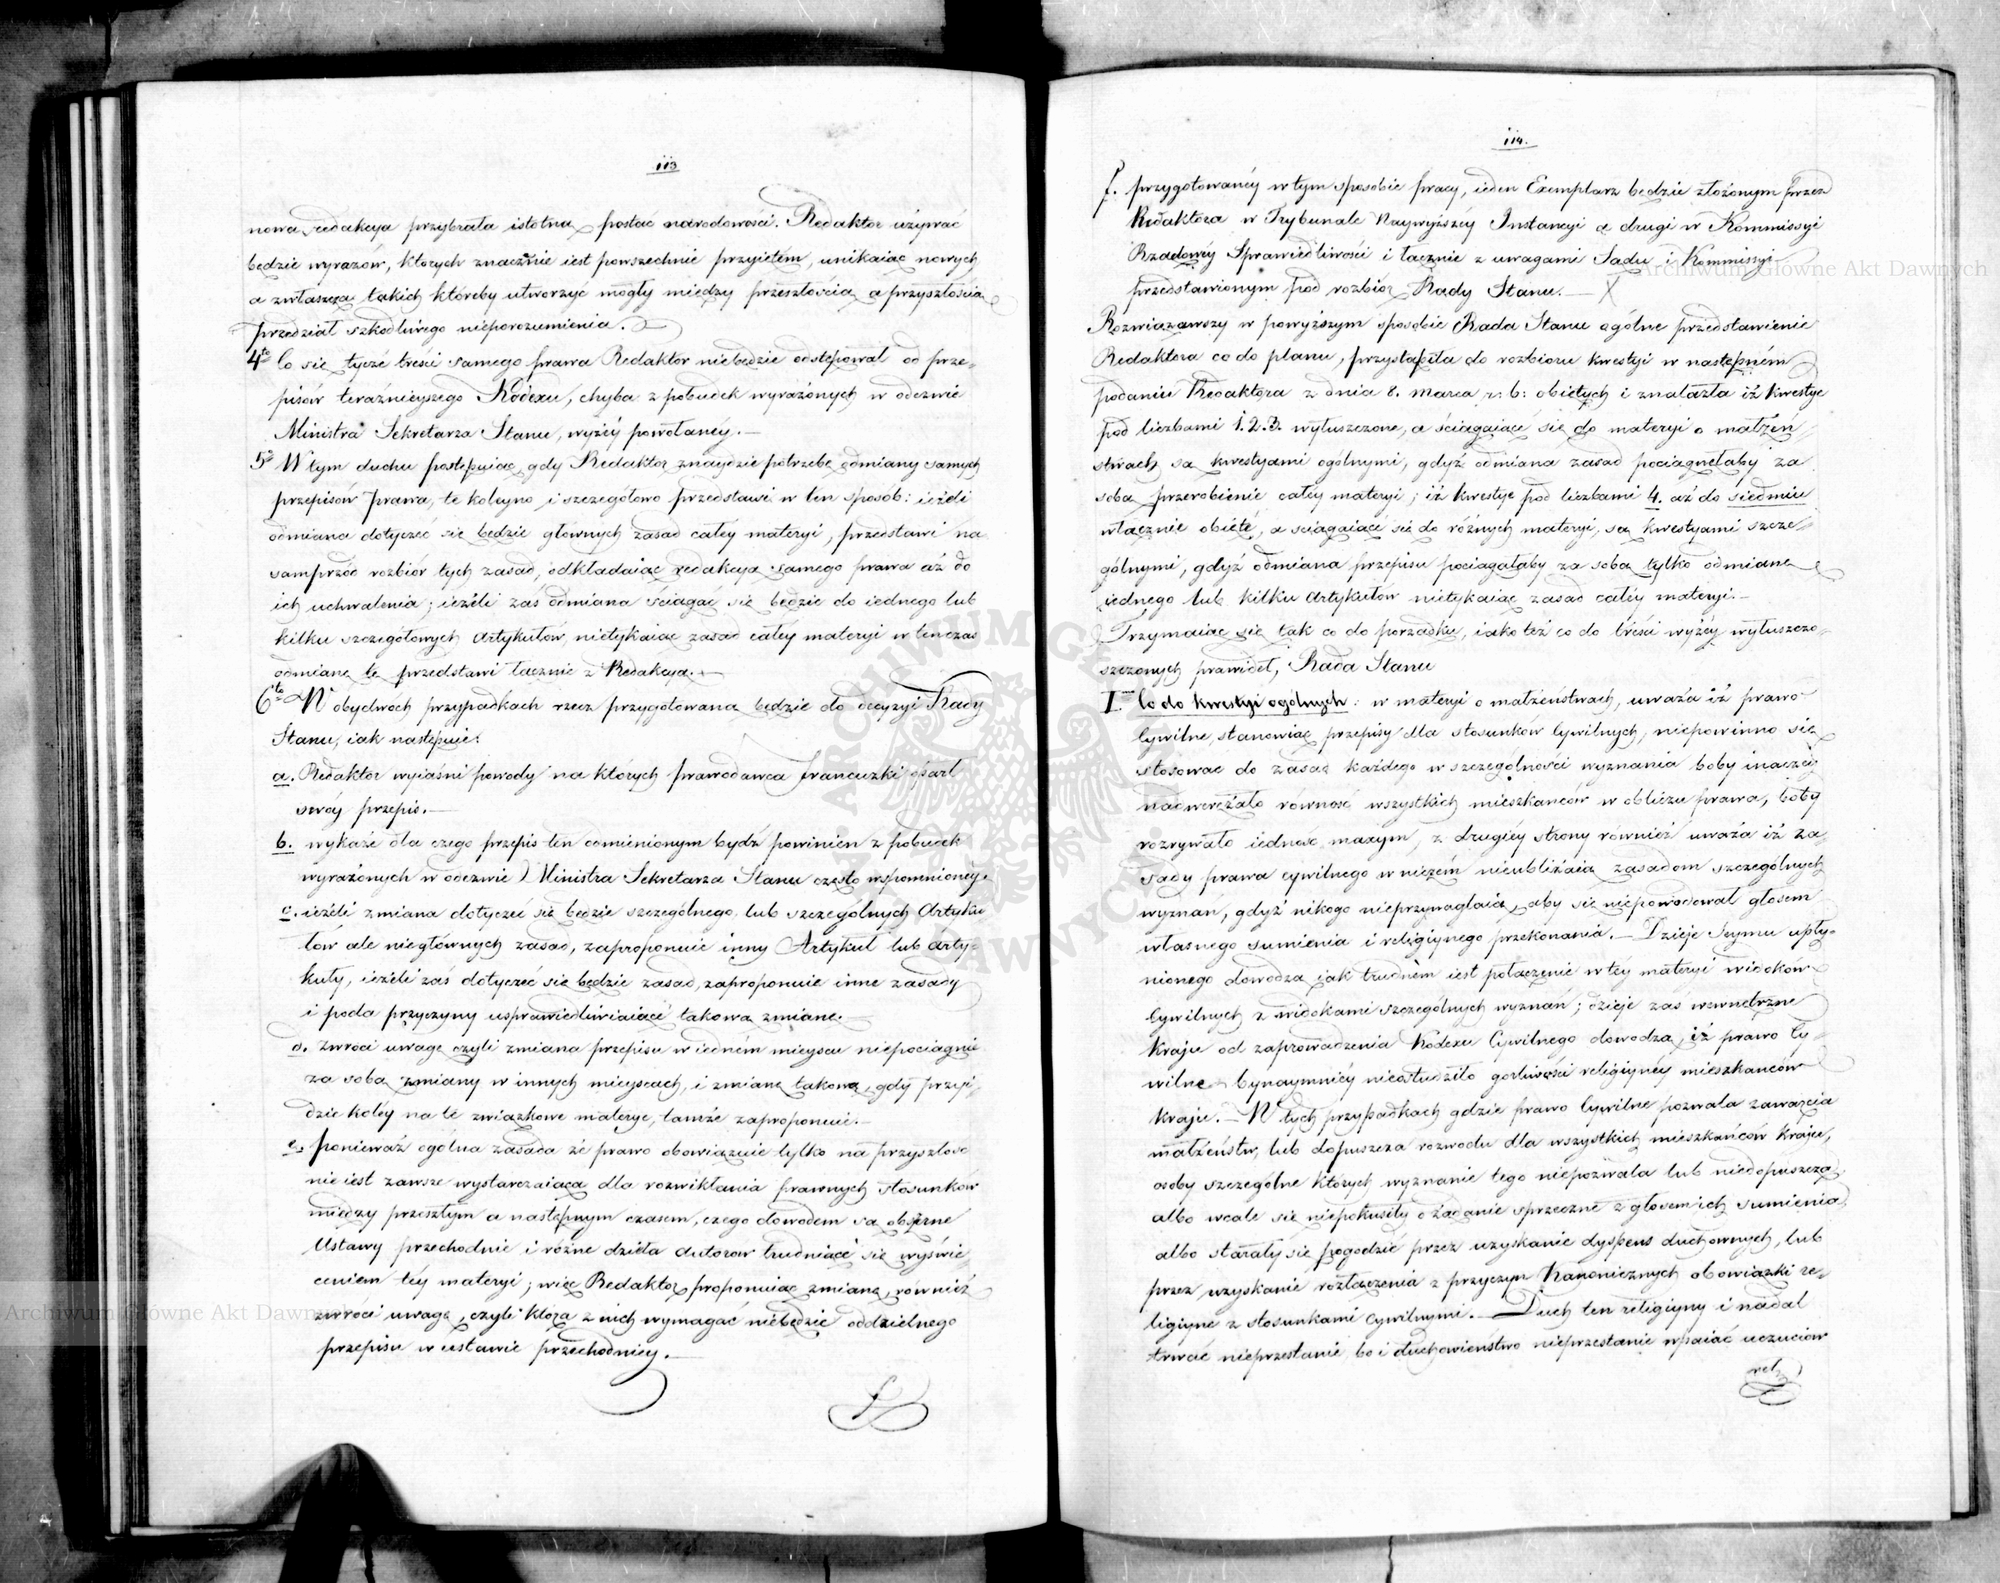 113
nowa redakcya przybrała istotną postać narodowości. Redaktor używać
będzie wyrazów, których znacznie iest powszechnie przyiętém, unikaiąc nowych
a zwłaszcza takich któreby utworzyć mogły między przeszłością a przyszłością
przedział szkodliwego nieporozumienia.
4to Co się tycze treści samego prawa Redaktor niebędzie odstępował od prze-
pisów teraźnieyszego Kodexu, chyba z pobudek wyrażonych w odezwie
Ministra Sekretarza Stanu, wyżéy powołanéy.—
5to W tym duchu postępuiąc, gdy Redaktor znaydzie potrzebę odmiany samych
przepisów prawa, te koleyno i szczegółowo przedstawi w ten sposób: ieżeli
odmiana dotyczeć się będzie głownych zasad całéy materyi, przedstawi na
samprzód rozbiór tych zasad, odkładaiąc redakcyą samego prawa aż do
ich uchwalenia; ieżeli zaś odmiana ściągać się będzie do iednego lub
kilku szczegółowych Artykułów, nietykaiąc zasad całéy materyi w tenczas
odmianę tę przedstawi łącznie z Redakcyą.—
6to W obydwóch przypadkach rzecz przygotowana będzie do decyzyi Rady
Stanu, iak następuie:
a. Redaktor wyiaśni powody na których prawodawca francuzki oparł
swóy przepis.—
b. wykaże dla czego przepis ten odmienionym bydź powinien z pobudek
wyrażonych w odezwie Ministra Sekretarza Stanu często wspomnionéy.
c. ieżeli zmiana dotyczeć się będzie szczególnego, lub szczególnych Artyku
łów ale niegłównych zasad, zaproponuie inny Artykuł lub Arty-
kuły, ieżeli zaś dotyczeć się będzie zasad, zaproponuie inne zasady
i poda przyczyny usprawiedliwiaiące takową zmianę.—
d. zwróci uwagę czyli zmiana przepisu w iedném mieyscu niepociągnie
za sobą zmiany w innych mieyscach, i zmianę takową, gdy przyi-
dzie koléy na te związkowe materye, tamże zaproponuie.—
e. ponieważ ogólna zasada że prawo obowiązuie tylko na przyszłość
nie iest zawsze wystarczaiąca dla rozwikłania prawnych stosunków
między przeszłym a następnym czasem, czego dowodem są obszerne
Ustawy przechodnie i różne dzieła Autorów trudniące się wyświe
ceniem téy materyi; więc Redaktor, proponuiąc zmianę, również
zwróci uwagę, czyli która z nich wymagać niebędzie oddzielnego
przepisu w ustawie przechodniey.—
114.
f. przygotowanéy w tym sposobie pracy, ieden Exemplarz będzie złożonym przez
Redaktora w Trybunale Naywyższéy Instancyi a drugi w Kommissyi
Rządowéy Sprawiedliwości i łącznie z uwagami Sądu i Kommissyi
przedstawionym pod rozbiór Rady Stanu.—
Rozwiązawszy w powyższym sposobie Rada Stanu ogólne przedstawienie
Redaktora co do planu, przystąpiła do rozbioru kwestyi w następném
podaniu Redaktora z dnia 8. Marca r: b: obiętych i znalazła iż kwestye
pod liczbami 1. 2. 3. wyłuszczone, a ściągaiące się do materyi o małżeń-
stwach są kwestyami ogólnymi, gdyż odmiana zasad pociągnęłaby za
sobą przerobienie całéy materyi; iż kwestye pod liczbami 4. aż do siedmiu
włącznie obięte, a ściągaiące się do różnych materyi, są kwestyami szcze-
gólnymi, gdyż odmiana przepisu pociągałaby za sobą tylko odmianę
iednego lub kilku Artykułów nietykaiąc zasad całéy materyi.—
Trzymaiąc się tak co do porządku, iako też co do treści wyżéy wyłuszczo-
szczonych prawideł, Rada Stanu
I. Co do kwestyi ogólnych: w materyi o małżeństwach, uważa iż prawo
Cywilne, stanowiąc przepisy dla stosunków Cywilnych, niepowinno się
stosować do zasad każdego w szczególności wyznania boby inaczéy
nadwerężało równość wszystkich mieszkańców w obliczu prawa, boby
rozrywało iedność maxym, z drugiéy strony również uważa iż za-
sady prawa cywilnego w niczém nieubliżaią zasadom szczególnych
wyznań, gdyż nikogo nieprzynaglaią, aby się niepowodował głosem
własnego sumienia i religiynego przekonania.— Dzieje Seymu upły-
nionego dowodzą iak trudném iest połączenie w téy materyi widoków
Cywilnych z widokami szczególnych wyznań; dzieje zaś wewnętrzne
Kraju od zaprowadzenia Kodexu Cywilnego dowodzą, iż prawo Cy-
wilne bynaymniéy nieostudziło gorliwości religiynéy mieszkańców
Kraju.— W tych przypadkach gdzie prawo Cywilne pozwala zawarcia
małżeństw, lub dopuszcza rozwodu dla wszystkich mieszkańców Kraju,
osoby szczególne których wyznanie tego niepozwala lub niedopuszcza,
albo wcale się niepokusiły o żądanie sprzeczne z głosem ich sumienia,
albo starały się pogodzić przez uzyskanie dyspens duchownych, lub
przez uzyskanie rozłączenia z przyczyn Kanonicznych obowiązki re-
ligiyne z stosunkami cywilnymi.— Duch ten religiyny i nadal
trwać nieprzestanie, bo i duchowieństwo nieprzestanie wpaiać uczuciów
rel
Archiwum Główne Akt Dawnych
Archiwum Główne Akt Dawnych
ARCHIWUM GŁÓWNE AKT DAWNYCH